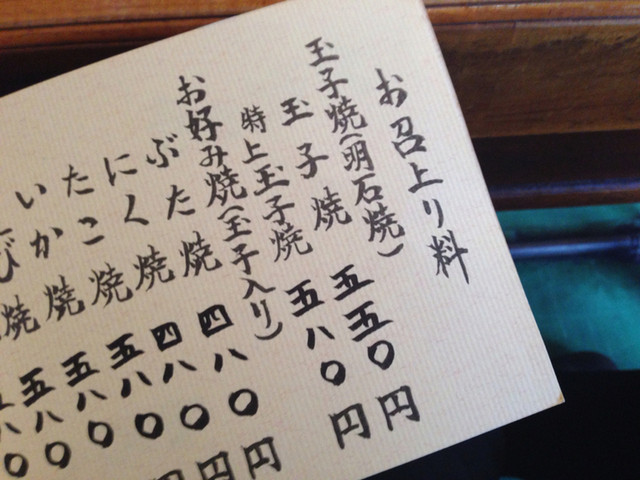 お召上り料
玉子焼(明石焼)
玉子焼 五五〇円
特上玉子焼 五八〇円
お好み焼(玉子入り)
ぶた焼 四八〇円
にく焼 四八〇円
たこ焼 五八〇円
いか焼 五八〇
び焼 五八〇
八〇